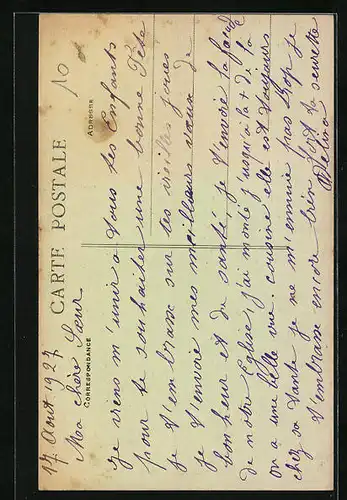 10
CARTE POSTALE
CORRESPONDANCE
ADRESSE
17 Aout 1927
Ma chère Sœur
Je viens m'unir a tous tes Enfants
pour te souhaiter une bonne Fête
Je t'embrasse sur tes vieilles joues
Je t'envoie mes meilleurs vœux de
bonheur et de santé, je t'envoie la
de notre Eglise, j'ai monté jusqu'a la + de la
on a une belle vue. cousine elle est toujours
chez sa tante je ne m'ennuie pas trop je
t'embrasse encore bien fort ta seurette